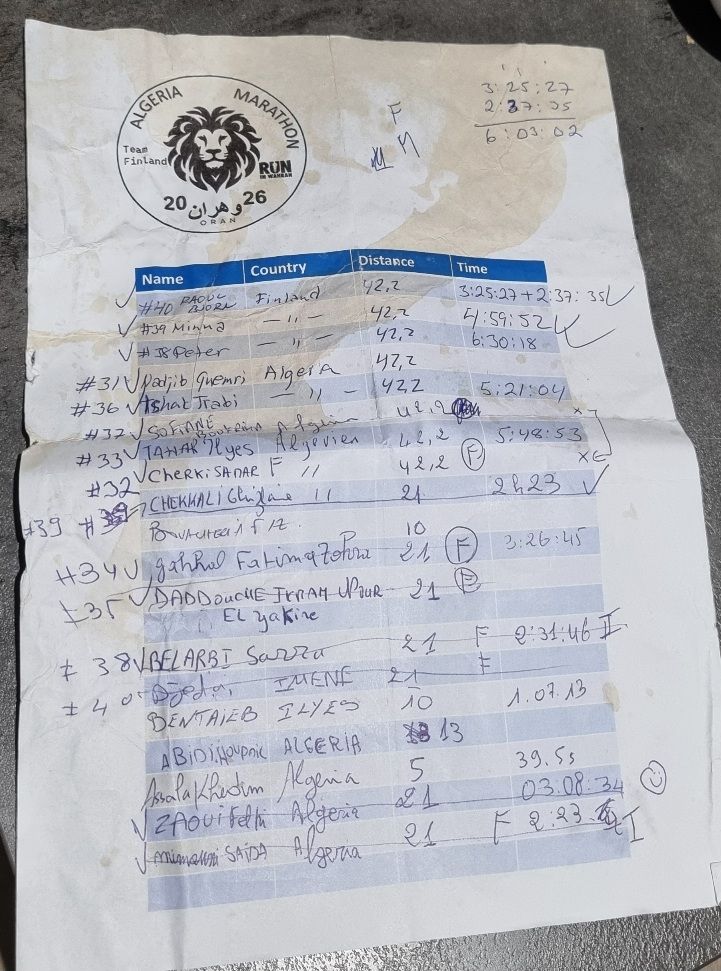 ALGERIA MARATHON
Team
Finland
RUN
IN WAHRAN
20 وهران 26
ORAN
3:25:27
2:37:35
6:03:02
F
M
Name Country Distance Time
#40 RAOUL BJORN Finland 42,2 3:25:27+2:37:35
#39 Minna — 〃 — 42,2 4:59:52
#38 Peter — 〃 — 42,2 6:30:18
#31 Nadjib Guemri Algeria 42,2
#36 Ishak Trabi — 〃 — 42,2 5:21:04
#37 SOFIANE Algerian 42,2
#33 TAHAR Ilyes Algerien 42,2 5:48:53
#32 CHERKI SAMAR F 〃 42,2 F
#39 CHEKKALI Ghizlaine 〃 21 2h23
10
#34 Fatima Zohra 21 F 3:26:45
#35 DADDOUCHE IKRAM NOUR 21 F
EL yakine
#38 BELARBI Sarra 21 F 2:31:46 II
#40 IMENE 21 F
BENTAIEB ILYES 10 1.07.13
ABIDI ALGERIA 13
Assala Khedim Algeria 5 39.55
ZAOUI Fethi Algeria 21 03:08:34
SAIDA Algeria 21 F 2:23 I